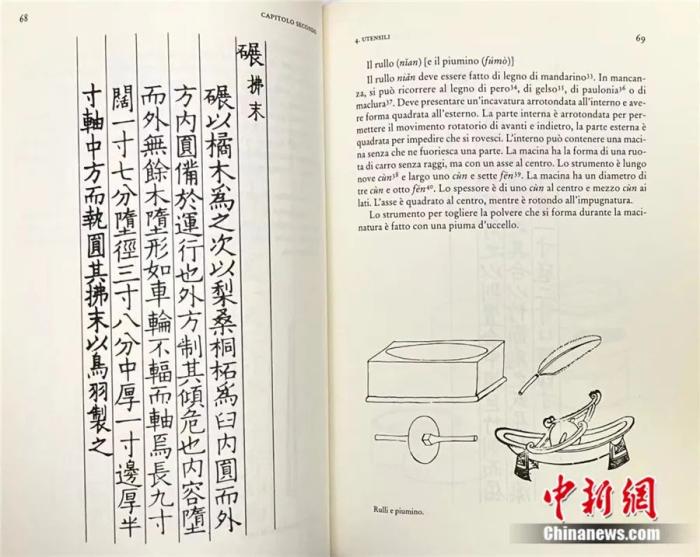 68
CAPITOLO SECONDO
碾 拂末
碾以橘木爲之次以梨桑桐柘爲臼内圓而外
方内圓備於運行也外方制其傾危也内容墮
而外無餘木墮形如車輪不輻而軸焉長九寸
闊一寸七分墮徑三寸八分中厚一寸邊厚半
寸軸中方而執圓其拂末以鳥羽製之
4. UTENSILI
69
Il rullo (niǎn) [e il piumino (fúmò)]
Il rullo niǎn deve essere fatto di legno di mandarino³³. In mancan-
za, si può ricorrere al legno di pero³⁴, di gelso³⁵, di paulonia³⁶ o di
maclura³⁷. Deve presentare un'incavatura arrotondata all'interno e ave-
re forma quadrata all'esterno. La parte interna è arrotondata per per-
mettere il movimento rotatorio di avanti e indietro, la parte esterna è
quadrata per impedire che si rovesci. L'interno può contenere una maci-
na senza che ne fuoriesca una parte. La macina ha la forma di una ruo-
ta di carro senza raggi, ma con un asse al centro. Lo strumento è lungo
nove cùn³⁸ e largo uno cùn e sette fēn³⁹. La macina ha un diametro di
tre cùn e otto fēn⁴⁰. Lo spessore è di uno cùn al centro e mezzo cùn ai
lati. L'asse è quadrato al centro, mentre è rotondo all'impugnatura.
Lo strumento per togliere la polvere che si forma durante la maci-
natura è fatto con una piuma d'uccello.
Rulli e piumino.
中新網
Chinanews.com